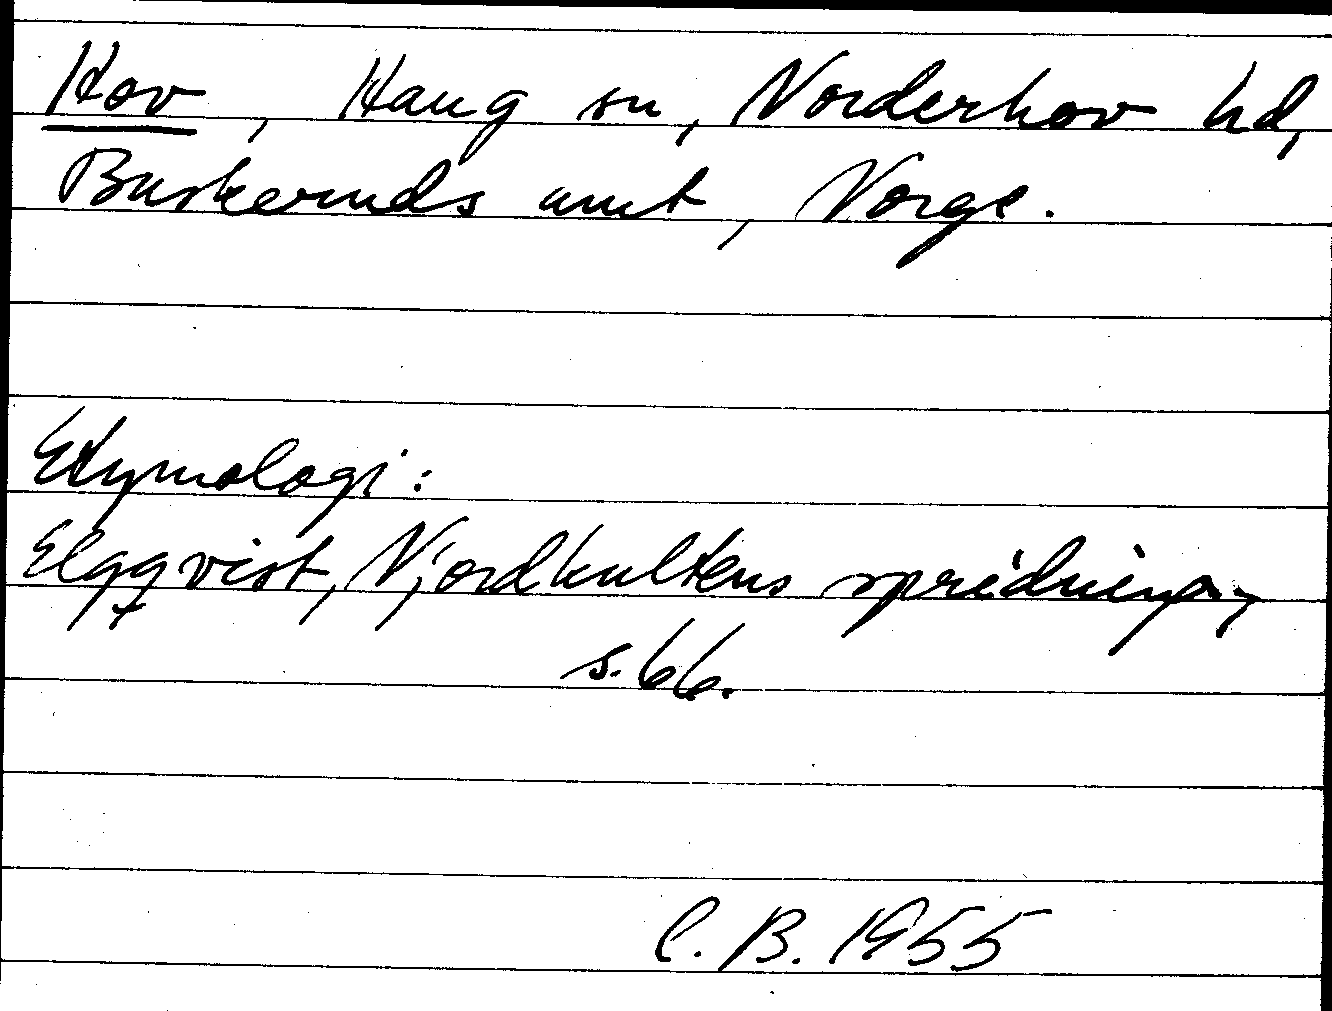 Hov, Haug sn, Norderhov hd,
Buskeruds amt, Norge.
Etymologi:
Elgqvist, Njordkultens spridning,
s. 66.
C. B. 1955